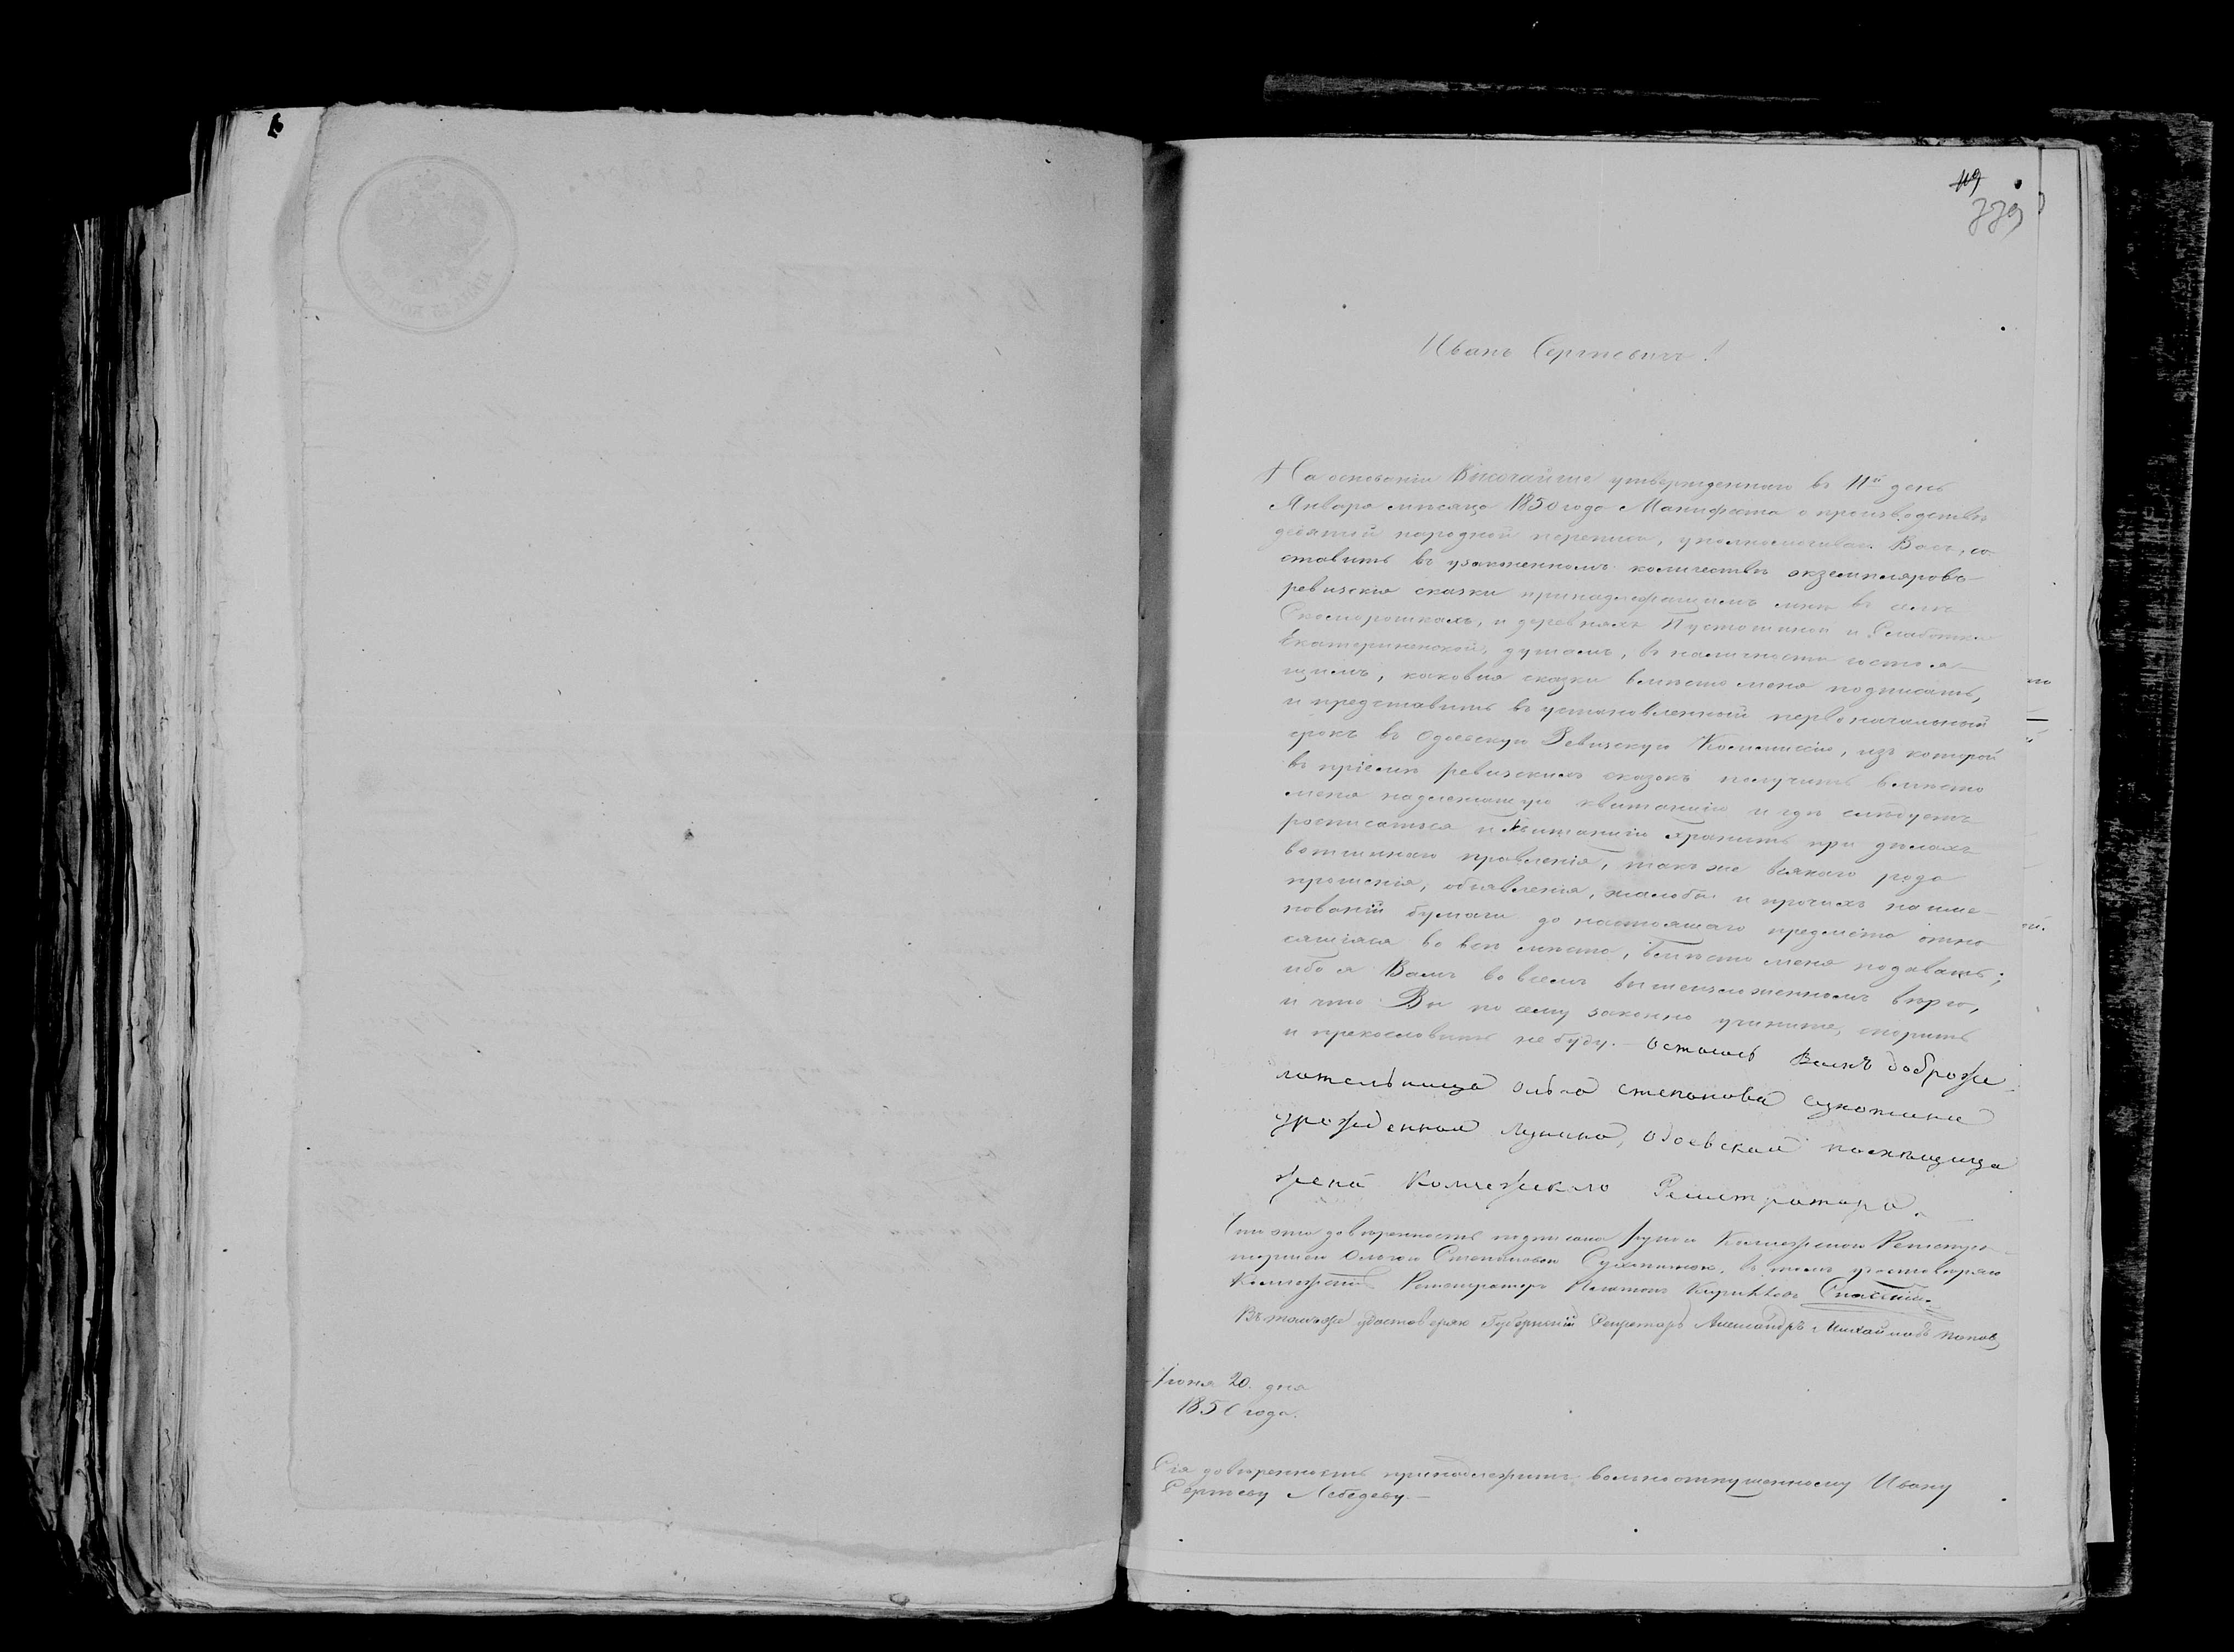 119
339
Иванъ Сергѣевичъ!
На основаніи Высочайше утвержденнаго въ 11й день
Января мѣсяца 1850 года Манифеста о производствѣ
девятой народной переписи, уполномочиваю Васъ, со-
ставить въ узаконенномъ количествѣ экземпляровъ
ревизскія сказки принадлежащимъ мнѣ въ селѣ
Скоморошкахъ, и деревняхъ Пустошиной и Слободкѣ
Екатерининской, душамъ, въ наличности состоя-
щимъ, каковыя сказки вмѣсто меня подписать,
и представить въ установленный первоначальный
срокъ въ Одоевскую Ревизскую Коммисію, изъ которой
въ пріемѣ ревизскихъ сказокъ получить вмѣсто
меня надлежащую квитанцію и гдѣ слѣдуетъ
росписаться и квитанцію хранить при дѣлахъ
вотчиннаго правленія, также всякаго рода
прошенія, объявленія, жалобы и прочихъ наиме-
нованій бумаги до настоящаго предмета отно
сящіяся во всѣ мѣста, вмѣсто меня подавать;
ибо я Вамъ во всемъ вышеизложенномъ вѣрю,
и что Вы по сему законно учините, спорить
и прекословить не буду. — Остаюсь Вамъ доброже
лательница Ольга Степанова Сухотина
урожденная Лунина, Одоевская помѣщица
жена Коллежскаго Регистратора.
Что эта довѣренность подписана рукою Коллежскою Регистра-
торшею Ольгою Степановою Сухотиною, въ томъ удостовѣряю
Коллежскій Регистраторъ Платонъ Спасскій.
Въ томъ же удостоверяю Губернскій Секретарь Александръ Михайловъ Поповъ
Іюня 20. дня
1850 года.
Сія довѣренность принадлежитъ вольноотпущенному Ивану
Сергѣеву Лебедеву. —